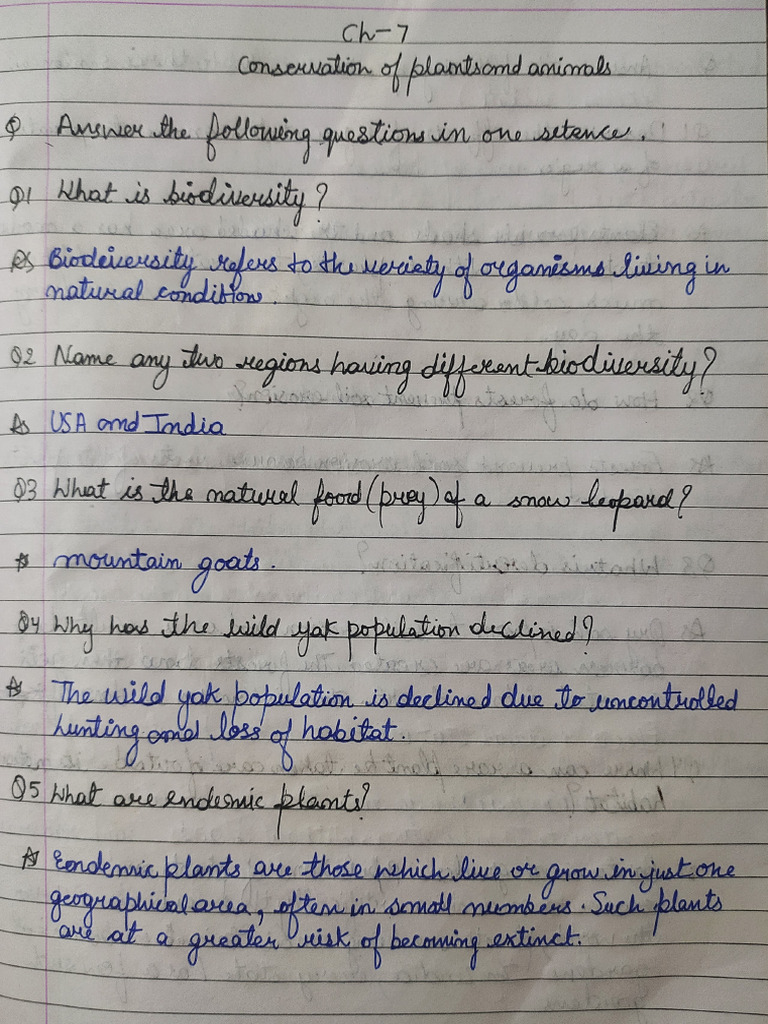 Ch-7
Conservation of plants and animals
Q Answer the following questions in one setance.
Q1 What is biodiversity?
As Biodeiversity refers to the veriety of organisms living in
natural condition.
Q2 Name any two regions having different biodiversity?
As USA and India
Q3 What is the natural food (prey) of a snow leopard?
As mountain goats.
Q4 Why has the wild yak population declined?
As The wild yak population is declined due to uncontrolled
hunting and loss of habitat.
Q5 What are endemic plants?
As Eendemic plants are those which live or grow in just one
geographical area, often in small numbers. Such plants
are at a greater risk of becoming extinct.